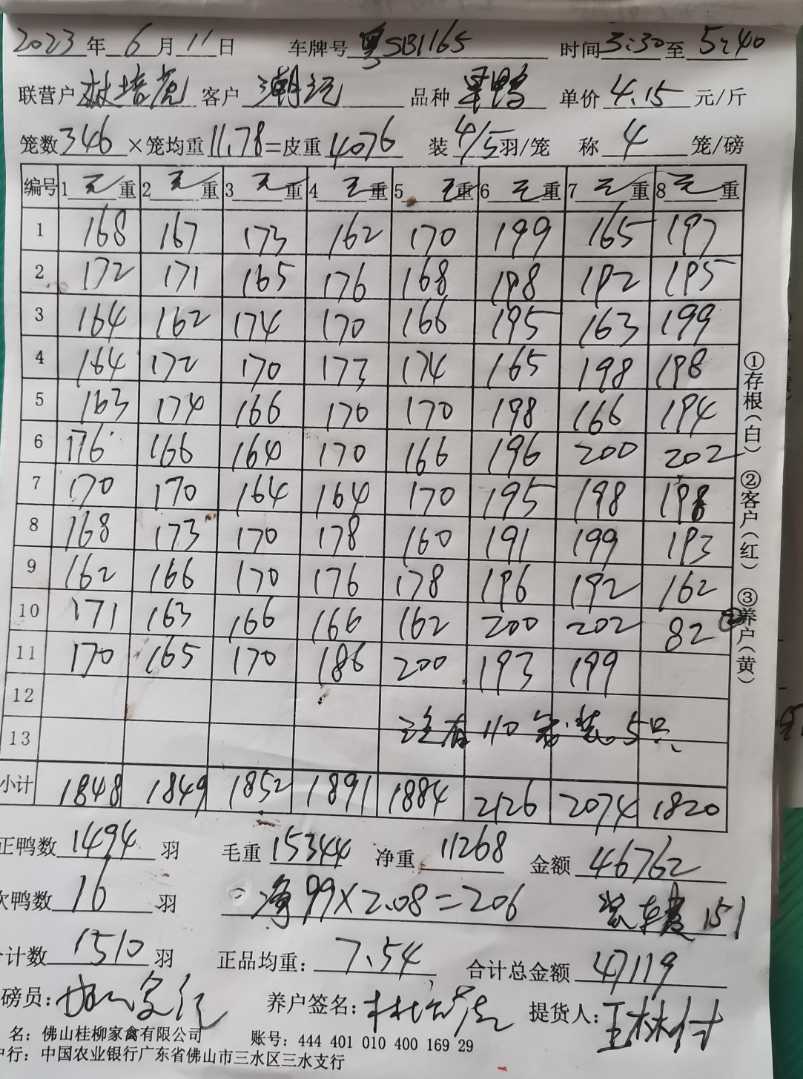 2023年6月11日 车牌号 粤SB1165 时间3:30至5:40
联营户 林培虎 客户 潮记 品种 单价4.15元/斤
笼数346×笼均重11.78=皮重4076 装4/5羽/笼 称4笼/磅
编号 1毛重 2毛重 3毛重 4毛重 5毛重 6毛重 7毛重 8毛重
1 168 167 173 162 170 199 165 197
2 172 171 165 176 168 198 192 195
3 164 162 174 170 166 195 163 199
4 164 172 170 173 174 165 198 198
5 163 174 166 170 170 198 166 194
6 176 166 164 170 166 196 200 202
7 170 170 164 164 170 195 198 198
8 168 173 170 178 160 191 199 193
9 162 166 170 176 178 196 192 162
10 171 163 166 166 162 200 202 82②
11 170 165 170 186 200 193 199
12
13 注有110笼装5只
小计 1848 1849 1852 1891 1884 2126 2074 1820
①存根(白) ②客户(红) ③养户(黄)
正鸭数1494羽 毛重15344 净重11268 金额46762
次鸭数16羽 净99×2.08=206 装车费151
合计数1510羽 正品均重:7.54 合计总金额47119
磅员: 养户签名: 提货人:
名:佛山桂柳家禽有限公司 账号:444 401 010 400 169 29
户行:中国农业银行广东省佛山市三水区三水支行